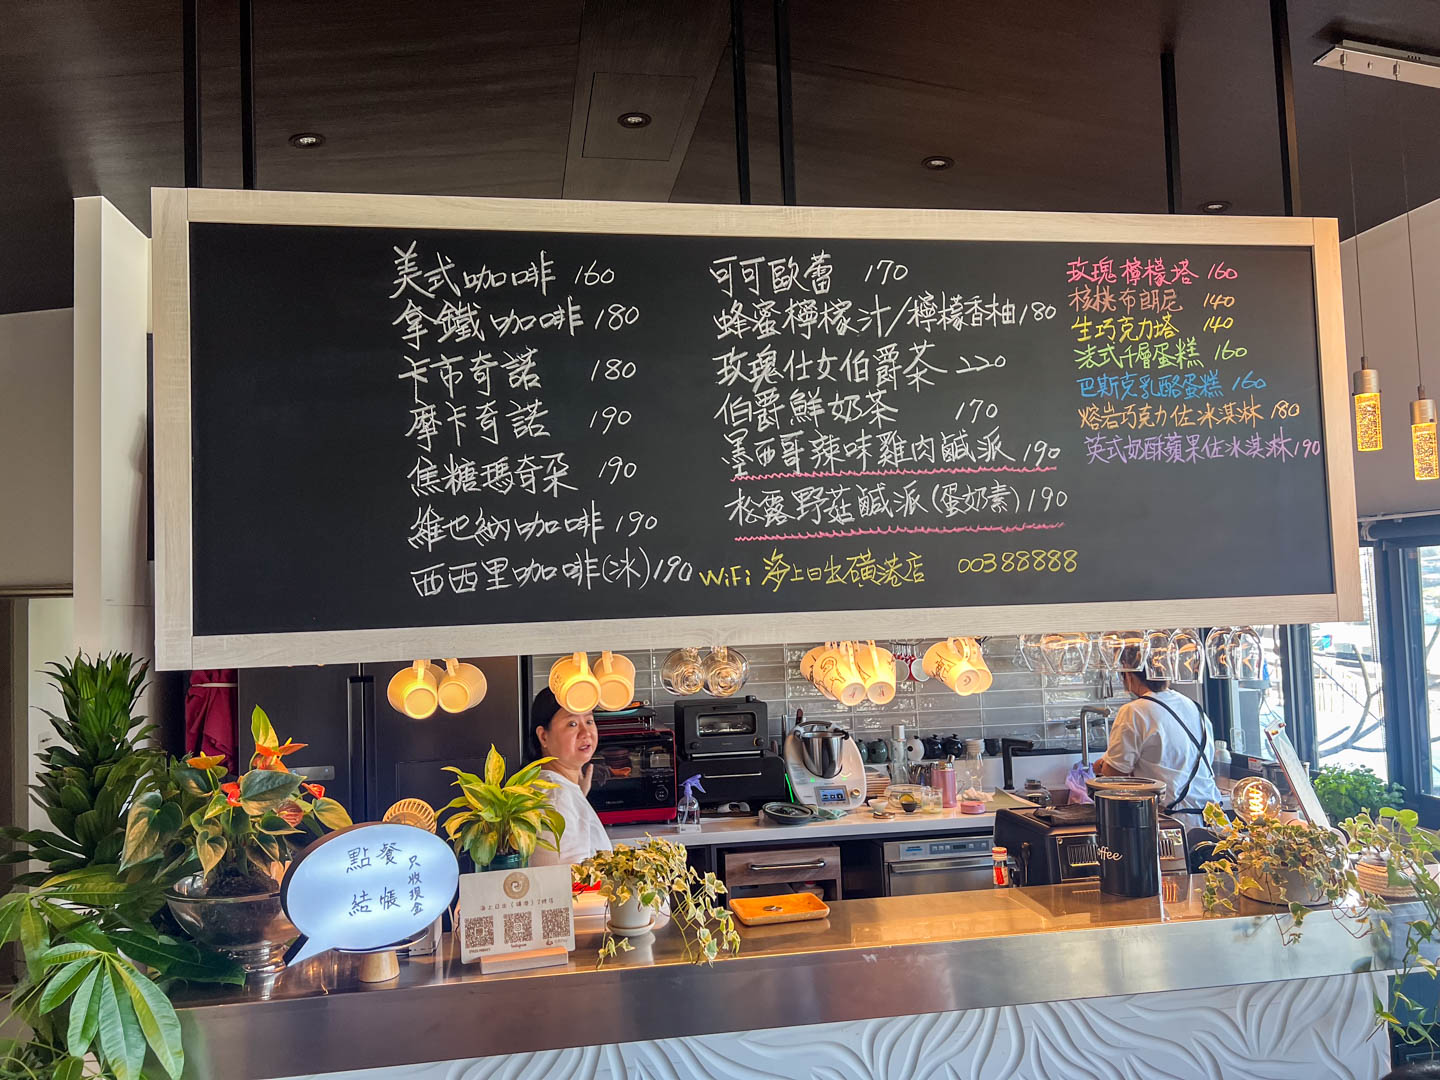 美式咖啡 160
拿鐵咖啡 180
卡布奇諾 180
摩卡奇諾 190
焦糖瑪奇朵 190
維也納咖啡 190
西西里咖啡(冰) 190
可可歐蕾 170
蜂蜜檸檬汁/檸檬香柚 180
玫瑰仕女伯爵茶 220
伯爵鮮奶茶 170
墨西哥辣味雞肉鹹派 190
松露野菇鹹派(蛋奶素) 190
WiFi 海上日出礦港店 00388888
玫瑰檸檬塔 160
核桃布朗尼 140
生巧克力塔 140
法式千層蛋糕 160
巴斯克乳酪蛋糕 160
熔岩巧克力佐冰淇淋 180
英式奶酥蘋果佐冰淇淋 190
點餐
結帳
只收現金
ffee